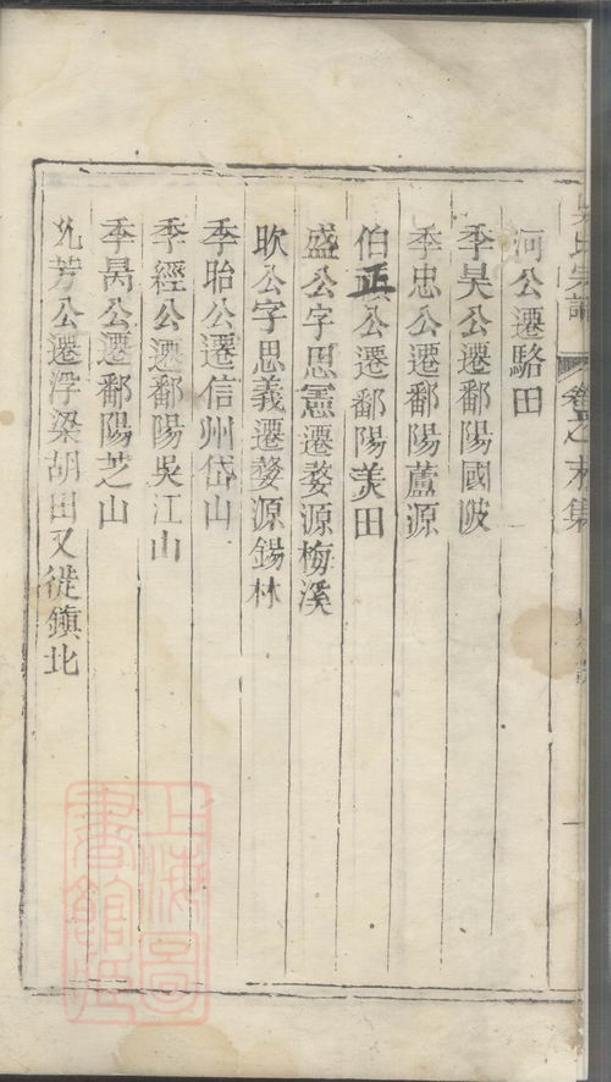 吳氏宗譜 卷之末集
河公遷駱田
季昊公遷鄱陽國陂
季忠公遷鄱陽蘆源
伯正公遷鄱陽羙田
盛公字思憲遷婺源梅溪
欧公字思義遷婺源錫林
季眙公遷信州岱山
季經公遷鄱陽吳江山
季昺公遷鄱陽芝山
允芳公遷浮梁胡田又徙鎮北
上海圖
書館藏